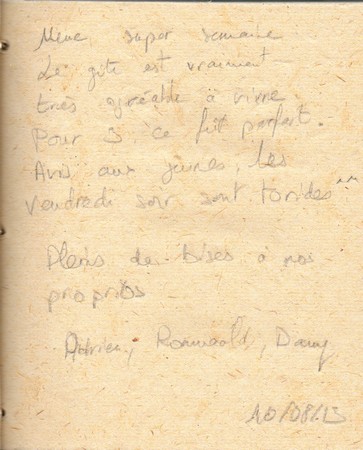 super semaine
Le gîte est vraiment
très agréable à vivre
Pour 3, ce fût parfait.
Avis aux jeunes, les
vendredi soir sont torides ^^
Pleins de bises à nos
proprios
Adrien, Romuald, Dany
10/08/13